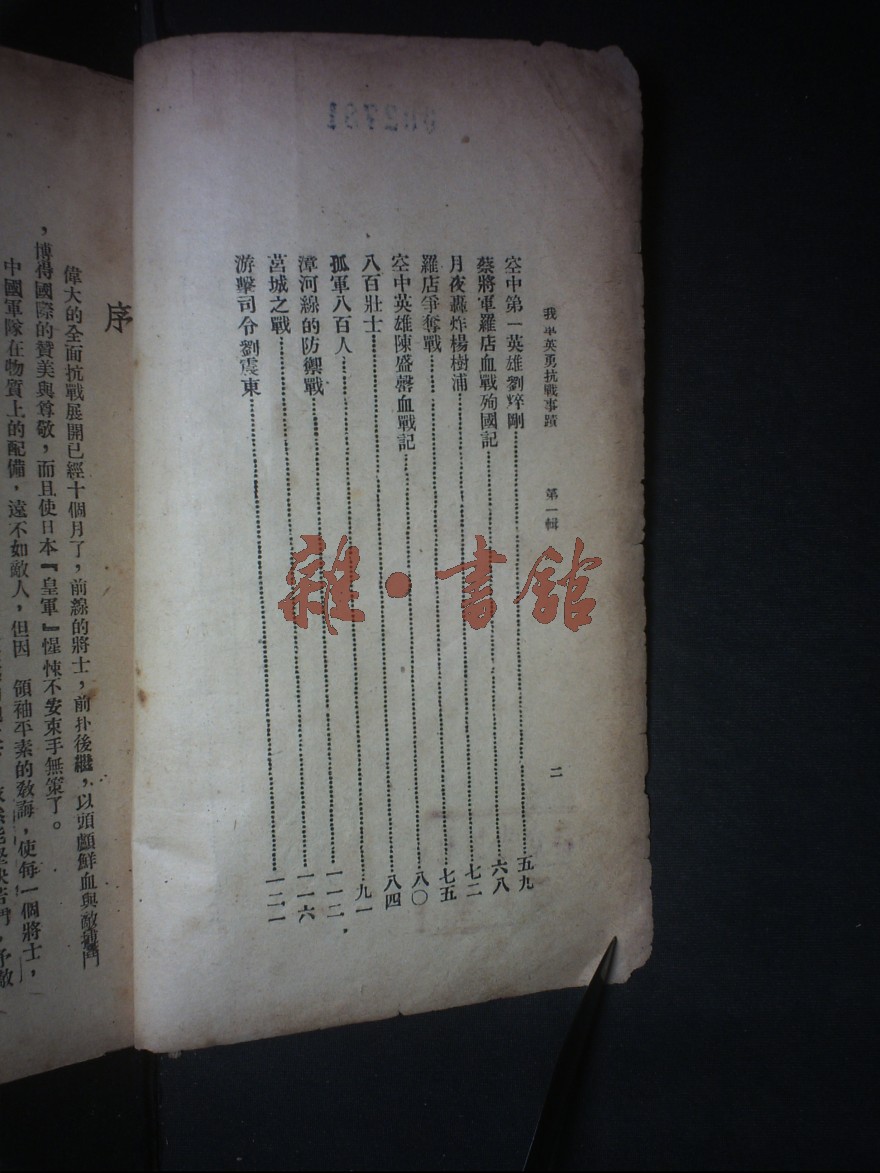 我軍英勇抗戰事蹟 第一輯 二
空中第一英雄劉焠剛……五九
蔡將軍羅店血戰殉國記……六八
月夜轟炸楊樹浦……七二
羅店爭奪戰……七五
空中英雄陳盛馨血戰記……八〇
八百壯士……八四
孤軍八百人……九一
漳河線的防禦戰……一一二
莒城之戰……一一六
游擊司令劉震東……一二一
序
偉大的全面抗戰展開已經十個月了，前線的將士，前扑後繼，以頭顱鮮血與敵搏鬥
，博得國際的贊美與尊敬，而且使日本『皇軍』惺悚不安束手無策了。
中國軍隊在物質上的配備，遠不如敵人，但因 領袖平素的教誨，使每一個將士，
雜·書館